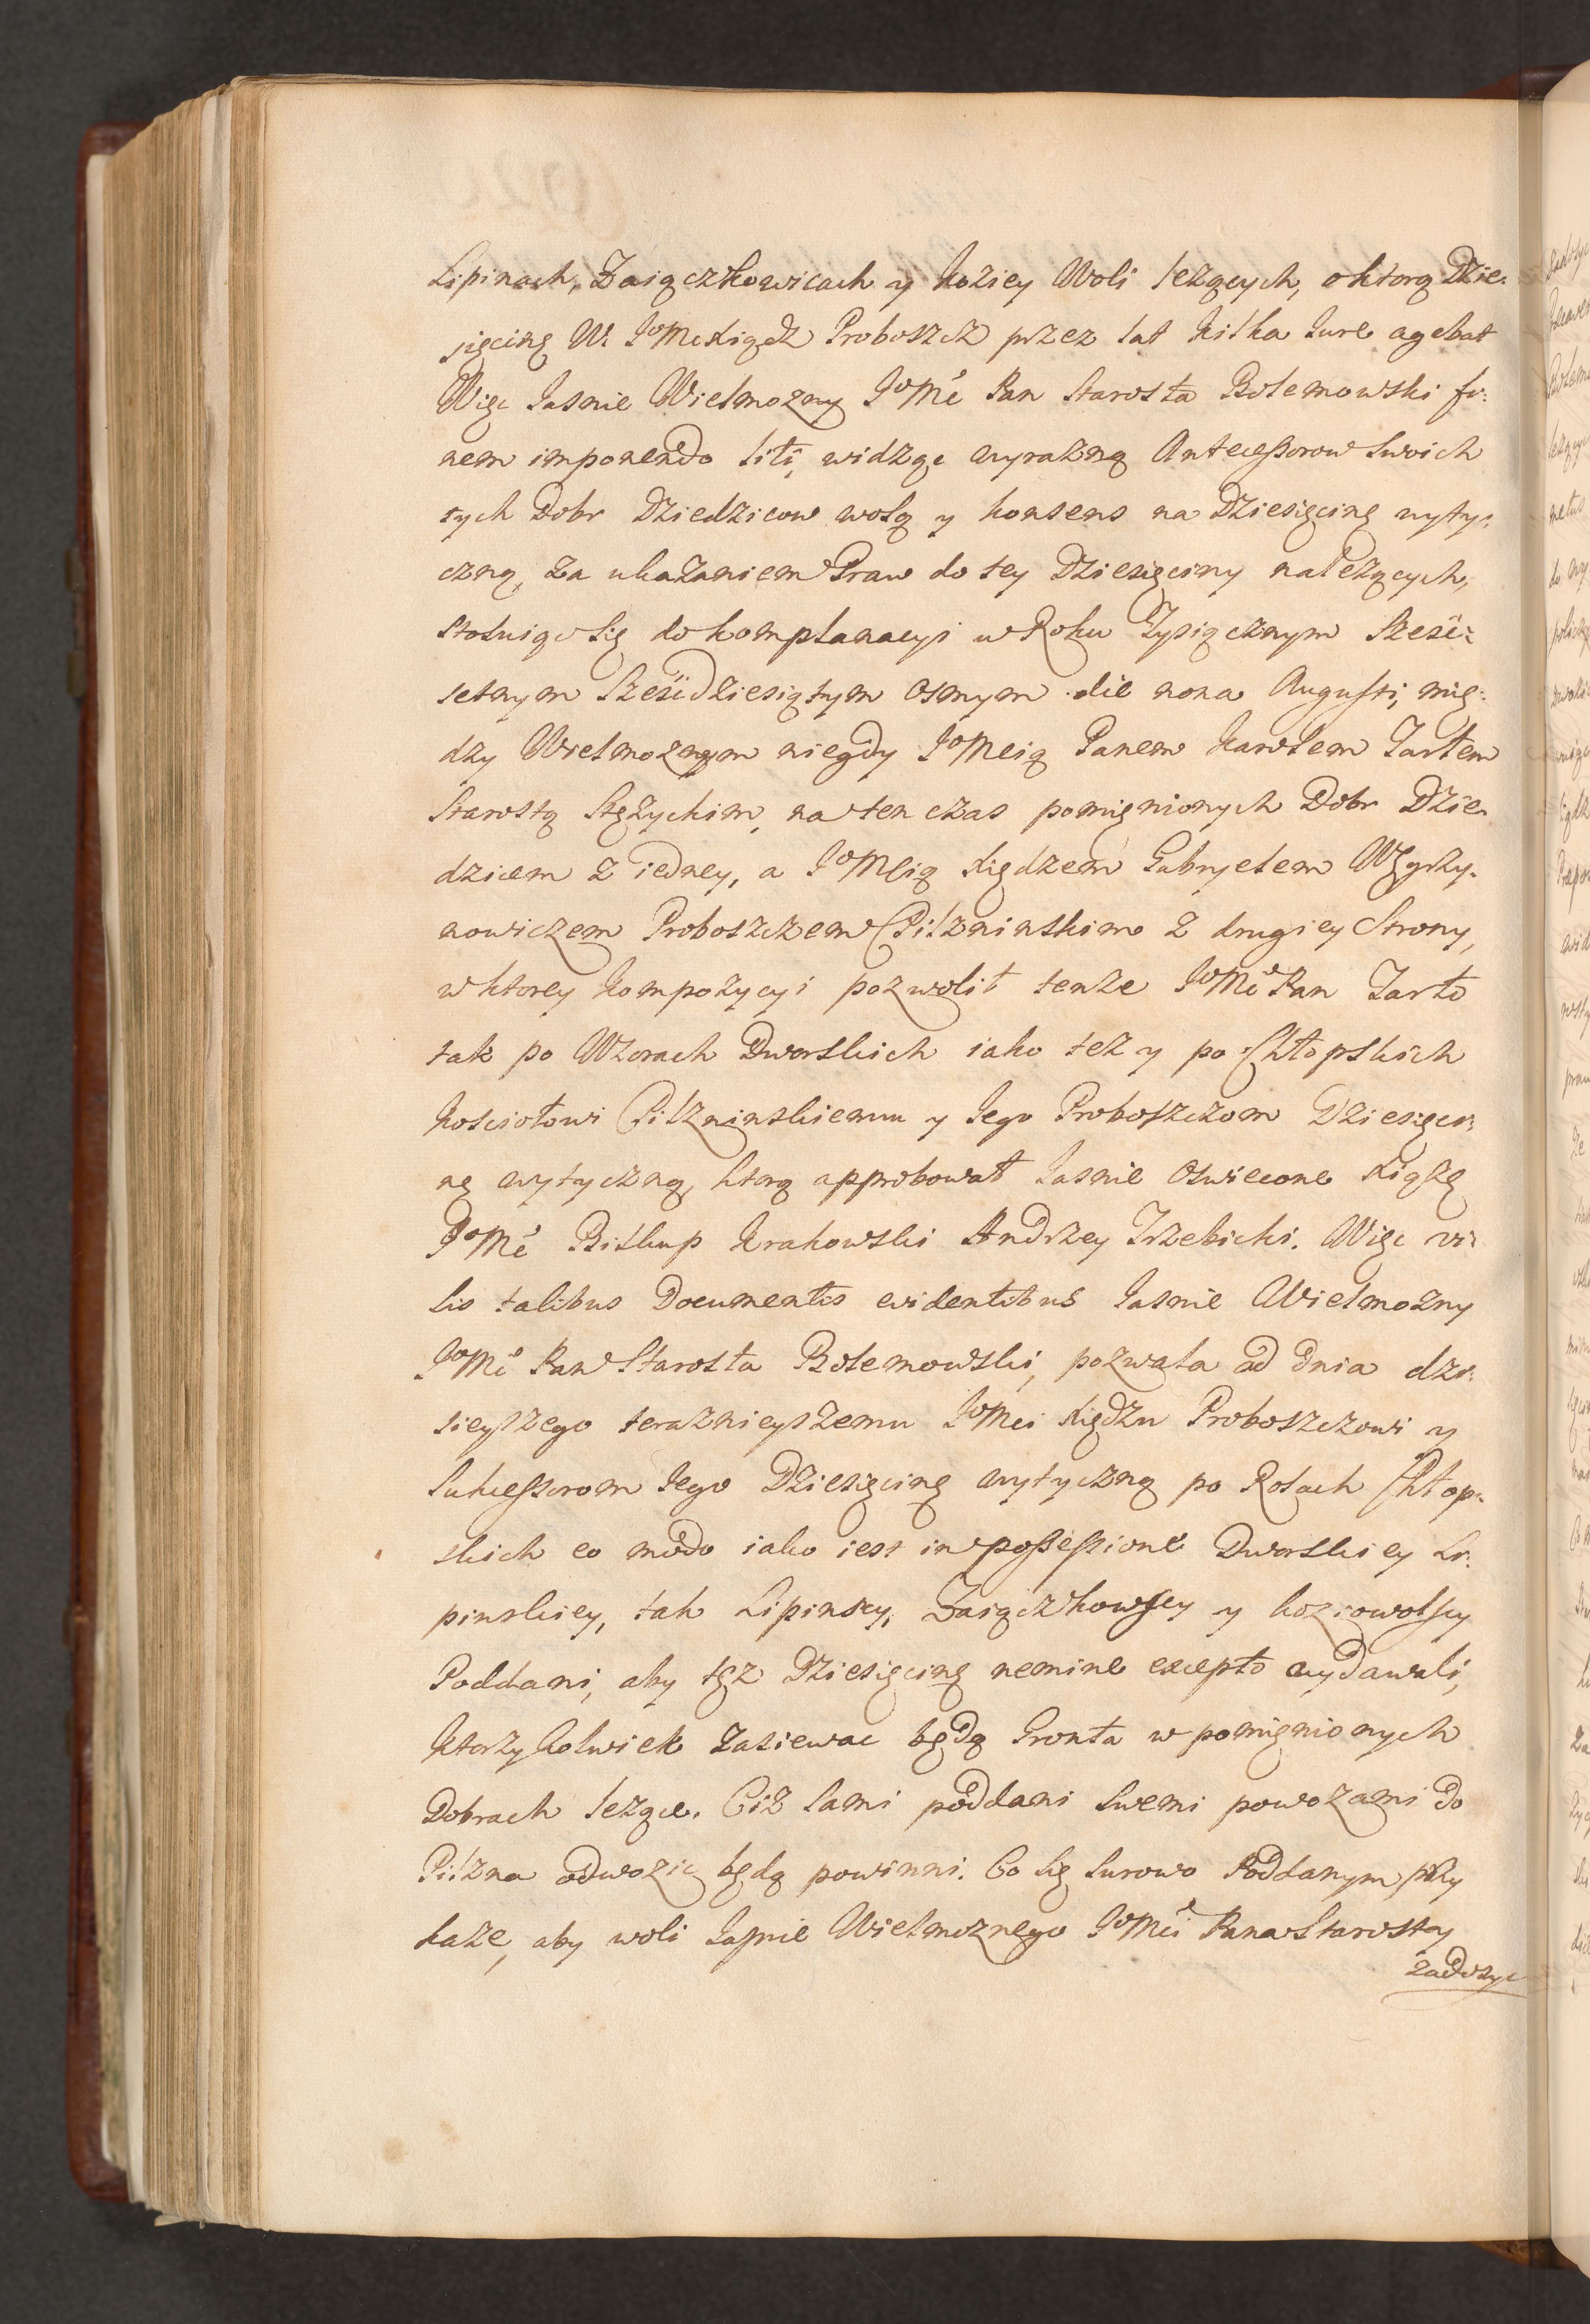 Lipinach, Zaiączkowicach y Koziey Woli leżących, o ktorą Dzie:
sięcinę W. JoMć Xiądz Proboszcz przez lat kilka Jure agebat
Więc Jasnie Wielmozny JoMć Pan Starosta Bolemowski fi:
nem imponendo liti, widząc wyrazną Antecessorow swoich
tych Dobr Dziedzicow wolą y konsens na Dziesięcinę wyty:
czną, za ukazaniem Praw do tey Dziesięciny należących,
stosuiąc się do komplanacyi w Roku Tysiącznym Sześć:
setnym Sześćdziesiątym osmym die nona Augusti, mię:
dzy Wielmoznym niegdy JoMcią Panem Karolem Tarłem
Starostą Stężyckim, na ten czas pomięnionych Dobr Dzie:
dzicem z iedney, a JoMcią Xiędzem Gabryelem Węgrzy:
nowiczem Proboszczem Pilzninskim z drugiey Strony,
w ktorey kompozycyi pozwolił tenze JoMć Pan Tarło
tak po Wzorach Dworskich iako tez y po Chłopskich
Kosciołowi Pilzninskiemu y Jego Proboszczom Dziesięci:
nę wytyczną, ktorą approbował Jasnie Oswiecone Xiąże
JoMć Biskup Krakowski Andrzey Trzebicki. Więc vi:
sis talibus Documentis evidentibus Jasnie Wielmozny
JoMć Pan Starosta Bolemowski, pozwala od dnia dzi:
sieyszego teraznieyszemu JoMci Xiędzu Proboszczowi y
Sukcessorom Jego Dziesięcinę wytyczną po Rolach Chłop:
skich eo modo iako iest in possessione Dworskiey Li:
pinskiey, tak Lipinscy, Zaiączkowscy y Koziowolscy
Poddani, aby tęz Dziesięcinę nemine excepto wydawali,
ktorzykolwiek zasiewac będą Gronta w pomięnionych
Dobrach lezące. Ciż sami poddani swemi powozami do
Pilzna odwozic będą powinni. Co się surowo Poddanym przy
kaze, aby woli Jasnie Wielmoznego JoMci Pana Starosty
zadosyc